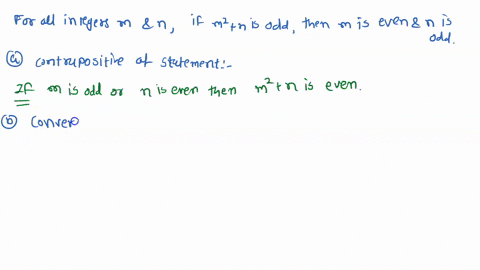 For all integers m & n, if m²+n is odd, then m is even & n is
odd.
(a) contrapositive of statement:-
If m is odd or n is even then m²+n is even.
(b) Conver